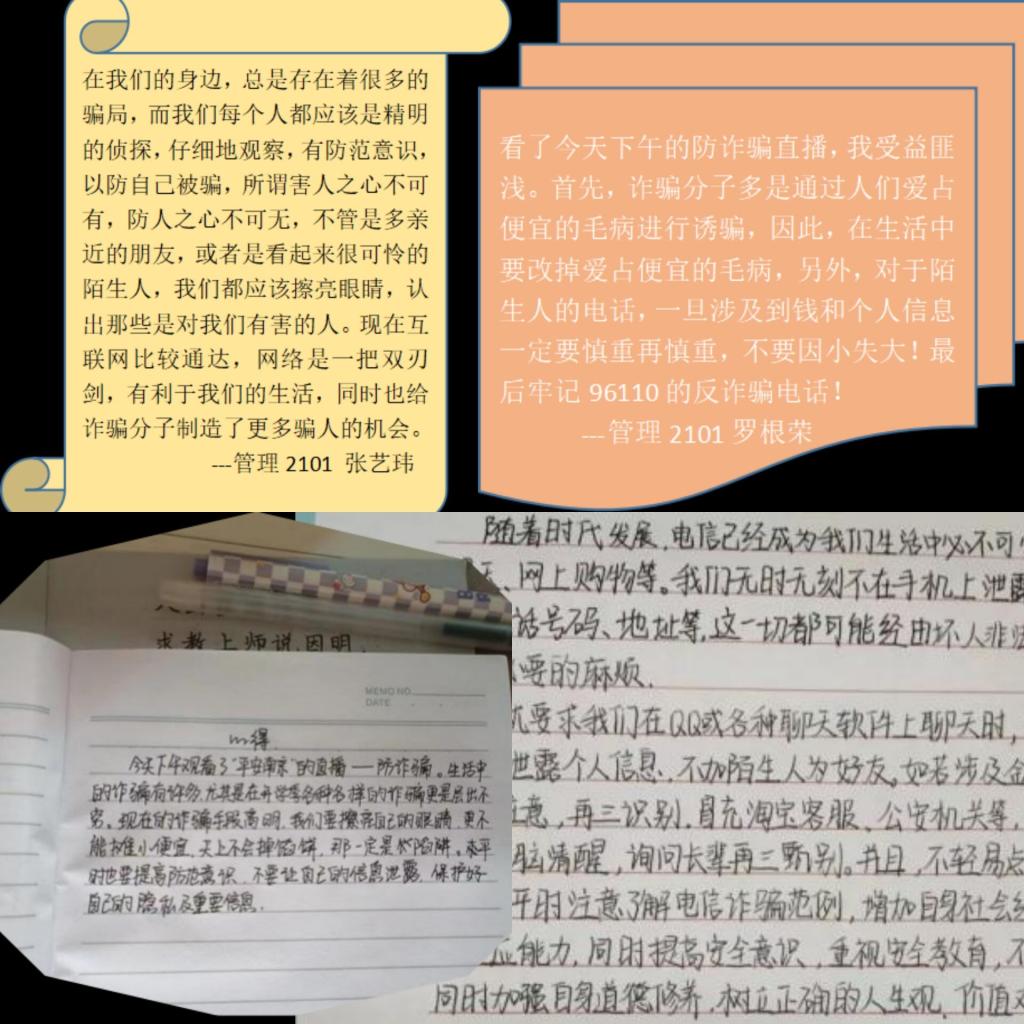 在我们的身边，总是存在着很多的
骗局，而我们每个人都应该是精明
的侦探，仔细地观察，有防范意识，
以防自己被骗，所谓害人之心不可
有，防人之心不可无，不管是多亲
近的朋友，或者是看起来很可怜的
陌生人，我们都应该擦亮眼睛，认
出那些是对我们有害的人。现在互
联网比较通达，网络是一把双刃
剑，有利于我们的生活，同时也给
诈骗分子制造了更多骗人的机会。
---管理 2101 张艺玮
看了今天下午的防诈骗直播，我受益匪
浅。首先，诈骗分子多是通过人们爱占
便宜的毛病进行诱骗，因此，在生活中
要改掉爱占便宜的毛病，另外，对于陌
生人的电话，一旦涉及到钱和个人信息
一定要慎重再慎重，不要因小失大！最
后牢记 96110 的反诈骗电话！
---管理 2101 罗根荣
求教上师说因明
MEMO NO.
DATE
心得
今天下午观看了"平安南京"的直播——防诈骗。生活中
的诈骗有许多,尤其是在开学季各种各样的诈骗更是层出不
穷。现在的诈骗手段高明,我们要擦亮自己的眼睛,更不
能贪小便宜,天上不会掉馅饼,那一定是个陷阱。水平
时也要提高防范意识,不要让自己的信息泄露,保护好
自己的隐私及重要信息.
随着时代发展,电信已经成为我们生活中必不可
、网上购物等。我们无时无刻不在手机上泄露
话号码、地址等,这一切都可能经由坏人非法
要的麻烦.
要求我们在QQ或各种聊天软件上聊天时,
泄露个人信息,不加陌生人为好友。如若涉及金
意,再三识别.自充淘宝客服、公安机关等,
脑清醒,询问长辈再三甄别。并且,不轻易点
平时注意了解电信诈骗范例,增加自身社会经
应能力,同时提高安全意识,重视安全教育,不
同时加强自身道德修养,树立正确的人生观,价值观